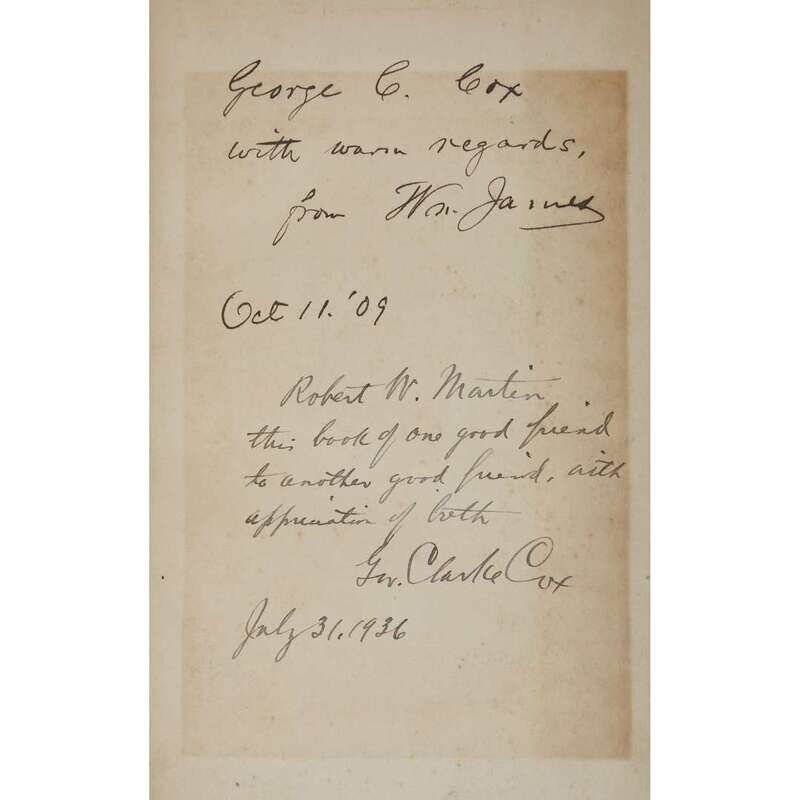 George C. Cox
with warm regards,
from Wm. James
Oct 11. '09
Robert W. Martin
this book of one good friend
to another good friend, with
appreciation of both
Geo. Clarke Cox
July 31. 1936